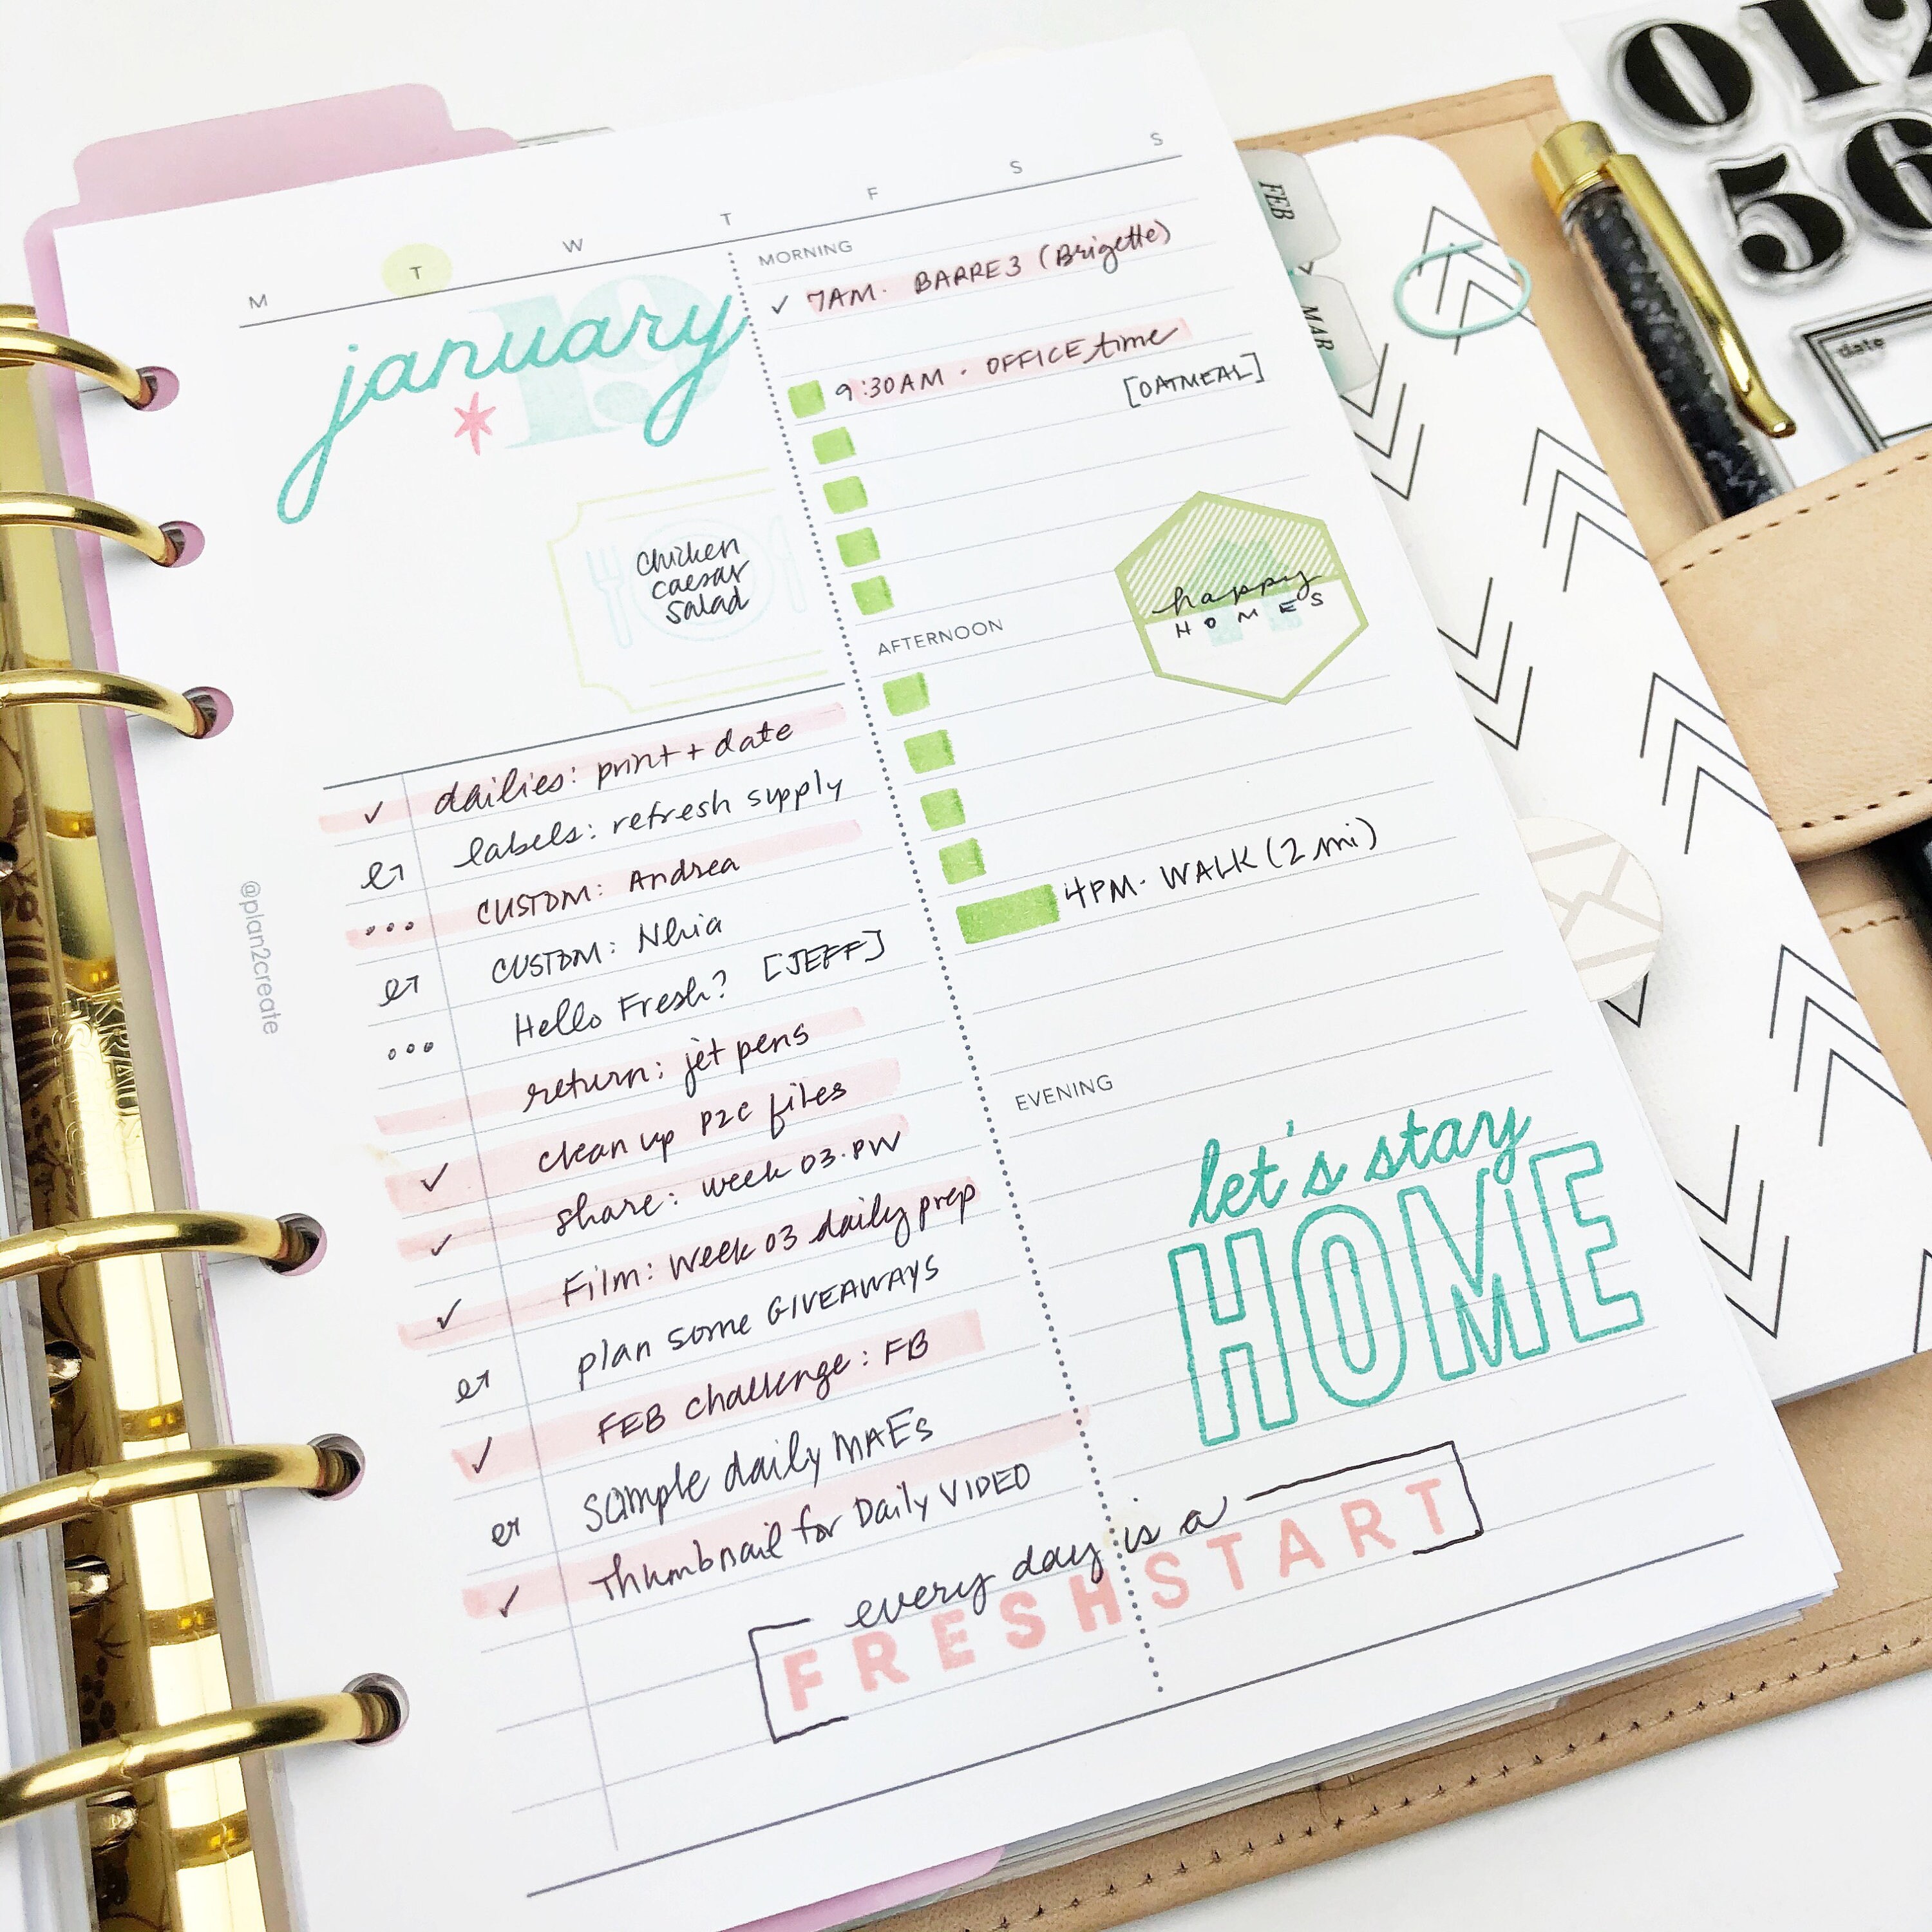 M T W T F S S
january
19
chicken
caesar
salad
✓ dailies: print + date
labels: refresh supply
... CUSTOM: Andrea
CUSTOM: Nhia
... Hello Fresh? [JEFF]
return: jet pens
✓ clean up P2C files
✓ share: week 03.PW
✓ Film: Week 03 daily prep
plan some GIVEAWAYS
✓ FEB challenge: FB
sample daily MAEs
✓ Thumbnail for Daily VIDEO
MORNING
✓ 7AM. BARRE3 (Brigette)
9:30AM . OFFICE time
[OATMEAL]
happy
HOMES
AFTERNOON
4PM. WALK (2 mi)
EVENING
let's stay
HOME
every day is a
FRESH START
@plan2create
FEB
MAR
012
56
date